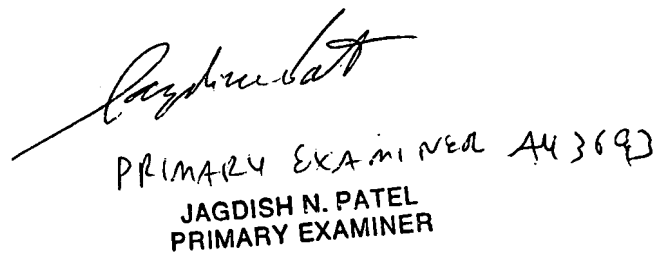 PRIMARY EXAMINER AU 3693
JAGDISH N. PATEL
PRIMARY EXAMINER